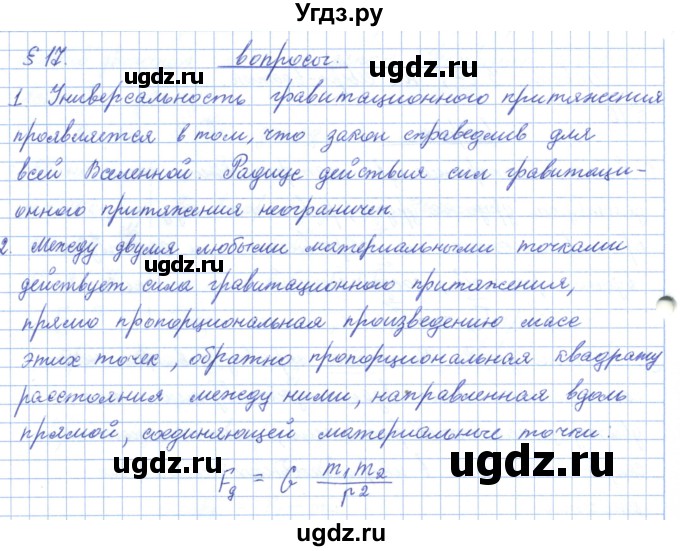 Угдз.ру
§ 17. вопросы.
1. Универсальность гравитационного притяжения
проявляется в том, что закон справедлив для
всей Вселенной. Радиус действия сил гравитаци-
онного притяжения неограничен.
2. Между двумя любыми материальными точками
действует сила гравитационного притяжения,
прямо пропорциональная произведению масс
этих точек, обратно пропорциональная квадрату
расстояния между ними, направленная вдоль
прямой, соединяющей материальные точки:
Fg = G m₁m₂ / r²
ugdz.ru
ugdz.ru
ugdz.ru
ugdz.ru
ugdz.ru
ugdz.ru
ugdz.ru
ugdz.ru
ugdz.ru
ugdz.ru
ugdz.ru
ugdz.ru